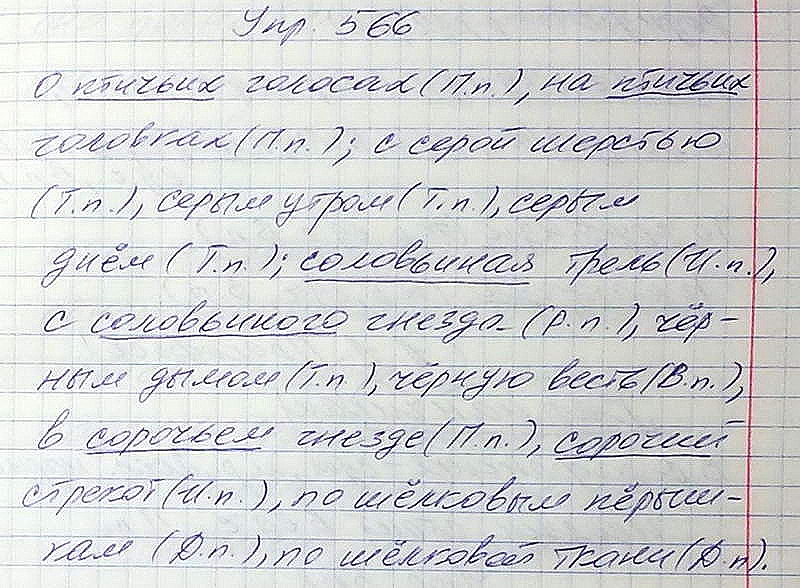 Упр. 566
О птичьих голосах (П.п.), на птичьих
головках (П.п.); с серой шерстью
(Т.п.), серым утром (Т.п.), серым
днём (Т.п.); соловьиная трель (И.п.),
с соловьиного гнезда (Р.п.), чёр-
ным дымом (Т.п), чёрную весть (В.п.),
в сорочьем гнезде (П.п.), сорочий
стрекот (И.п.), по шёлковым пёрыш-
кам (Д.п.), по шёлковой ткани (Д.п).